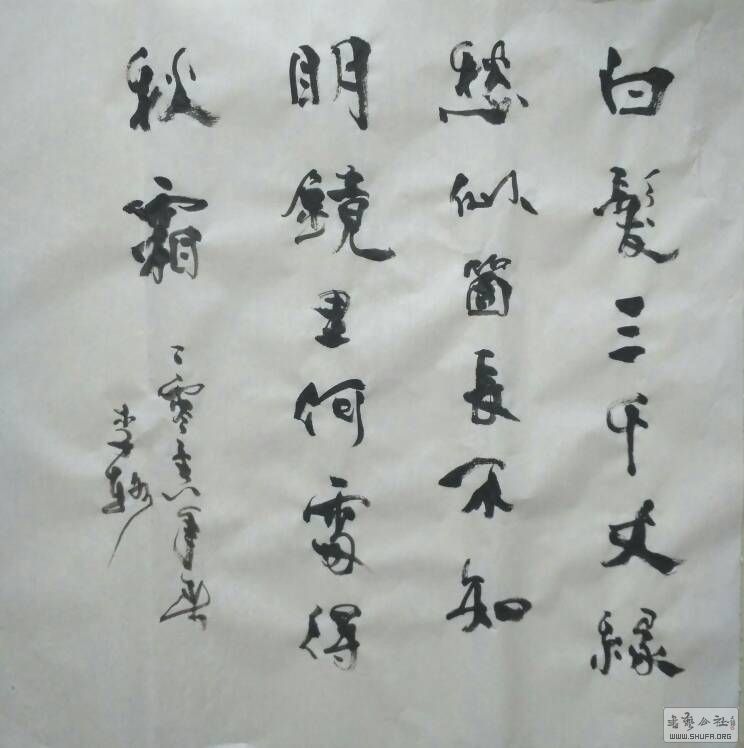 白髮三千丈緣
愁似箇長不知
明鏡里何處得
秋霜
二零壹八年
李
書藝公社
WWW.SHUFA.ORG